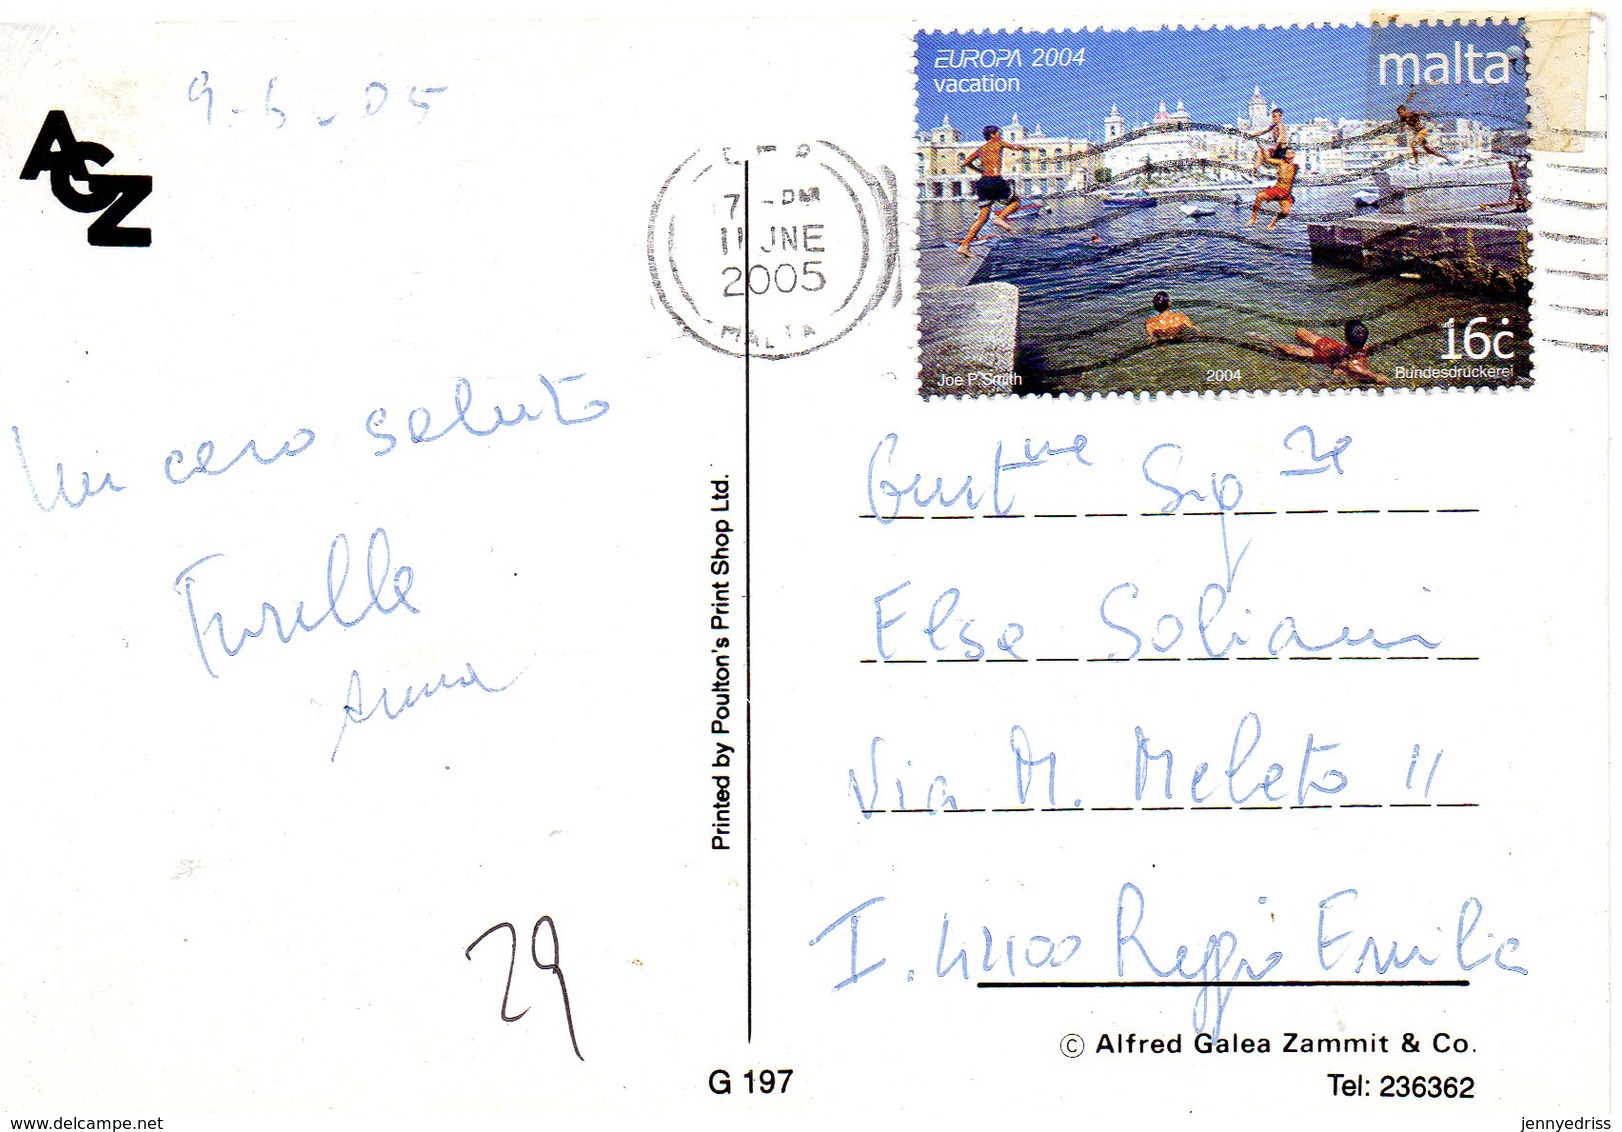 9-6-05
AGZ
EUROPA 2004
vacation
malta
7 - PM
11 JNE
2005
MALTA
16c
Joe P Smith
2004
Bundesdruckerei
Un caro saluto
Anna
29
Printed by Poulton's Print Shop Ltd.
G 197
Gent.me Sig.re
Elsa Soliani
Via M. Meleto 11
I. 42100 Reggio Emilia
© Alfred Galea Zammit & Co.
Tel: 236362
delcampe.net
jennyedriss